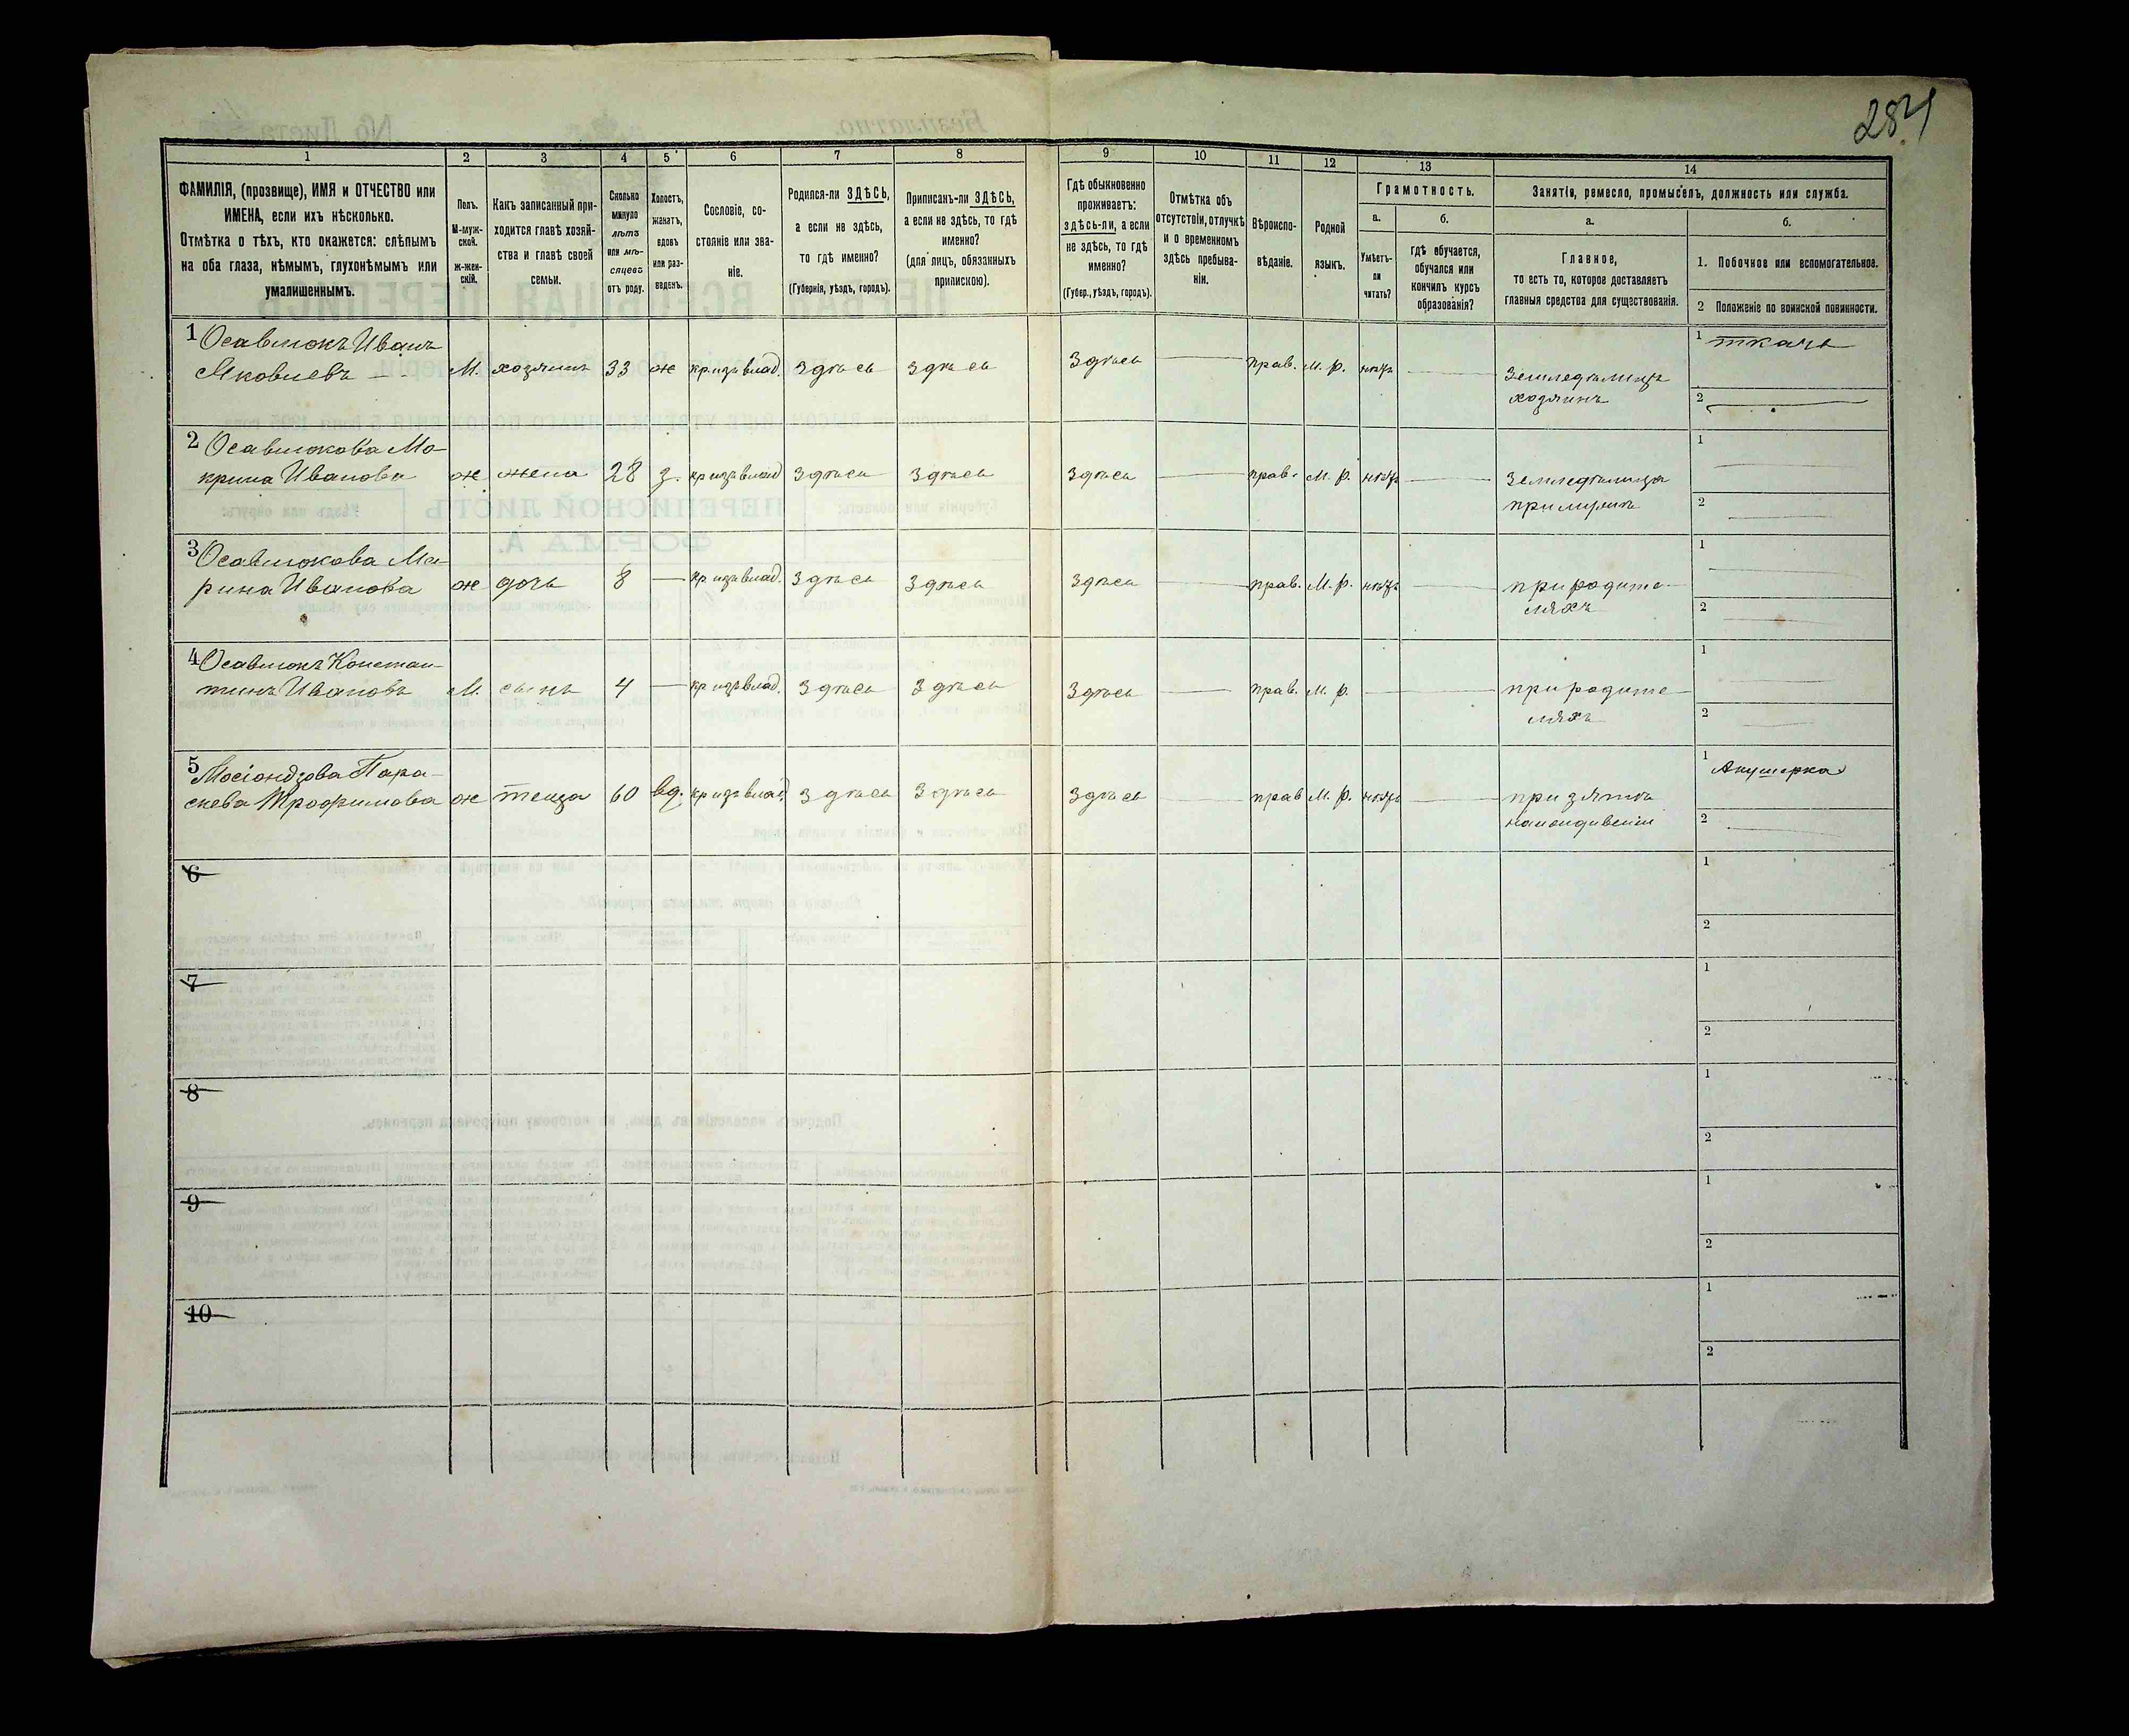 284
1 2 3 4 5 6 7 8 9 10 11 12 13 14
ФАМИЛІЯ, (прозвище), ИМЯ и ОТЧЕСТВО или
ИМЕНА, если ихъ нѣсколько.
Отмѣтка о тѣхъ, кто окажется: слѣпымъ
на оба глаза, нѣмымъ, глухонѣмымъ или
умалишеннымъ.
Полъ.
М-муж-
ской.
ж-жен-
скій.
Какъ записанный при-
ходится главѣ хозяй-
ства и главѣ своей
семьи.
Сколько
минуло
лѣтъ
или мѣ-
сяцевъ
отъ роду.
Холостъ,
женатъ,
вдовъ
или раз-
веденъ.
Сословіе, со-
стояніе или зва-
ніе.
Родился-ли ЗДѢСЬ,
а если не здѣсь,
то гдѣ именно?
(Губернія, уѣздъ, городъ).
Приписанъ-ли ЗДѢСЬ,
а если не здѣсь, то гдѣ
именно?
(для лицъ, обязанныхъ
припискою).
Гдѣ обыкновенно
проживаетъ:
здѣсь-ли, а если
не здѣсь, то гдѣ
именно?
(Губер., уѣздъ, городъ).
Отмѣтка объ
отсутствіи, отлучкѣ
и о временномъ
здѣсь пребыва-
ніи.
Вѣроиспо-
вѣданіе.
Родной
языкъ.
Грамотность.
а.
Умѣетъ-
ли
читать?
б.
гдѣ обучается,
обучался или
кончилъ курсъ
образованія?
Занятія, ремесло, промыселъ, должность или служба.
а.
Главное,
то есть то, которое доставляетъ
главныя средства для существованія.
б.
1. Побочное или вспомогательное.
2 Положеніе по воинской повинности.
1 Осавлюкъ Иванъ
Яковлевъ М. хозяинъ 33 ж кр. изъ влад. Здѣсь Здѣсь Здѣсь прав. М. р. нѣтъ
Земледѣлецъ
хозяинъ
1 ткачъ
2
2 Осавлюкова Ма-
крина Иванова ж жена 28 з. кр изъ влад Здѣсь Здѣсь Здѣсь прав. М. р. нѣтъ
Земледѣлица
при мужѣ
1
2
3 Осавлюкова Ма-
рина Иванова ж дочь 8 кр изъ влад. Здѣсь Здѣсь Здѣсь прав. М. р. нѣтъ
при родите-
ляхъ
1
2
4 Осавлюкъ Констан-
тинъ Ивановъ М. сынъ 4 кр изъ влад. Здѣсь Здѣсь Здѣсь прав. М. р.
при родите-
ляхъ
1
2
5
Параскева Трофимова ж теща 60 вд. кр изъ влад. Здѣсь Здѣсь Здѣсь прав М. р. нѣтъ
при зятѣ
на иждивеніи
1 Акушерка
2
6
1
2
7
1
2
8
1
2
9
1
2
10
1
2